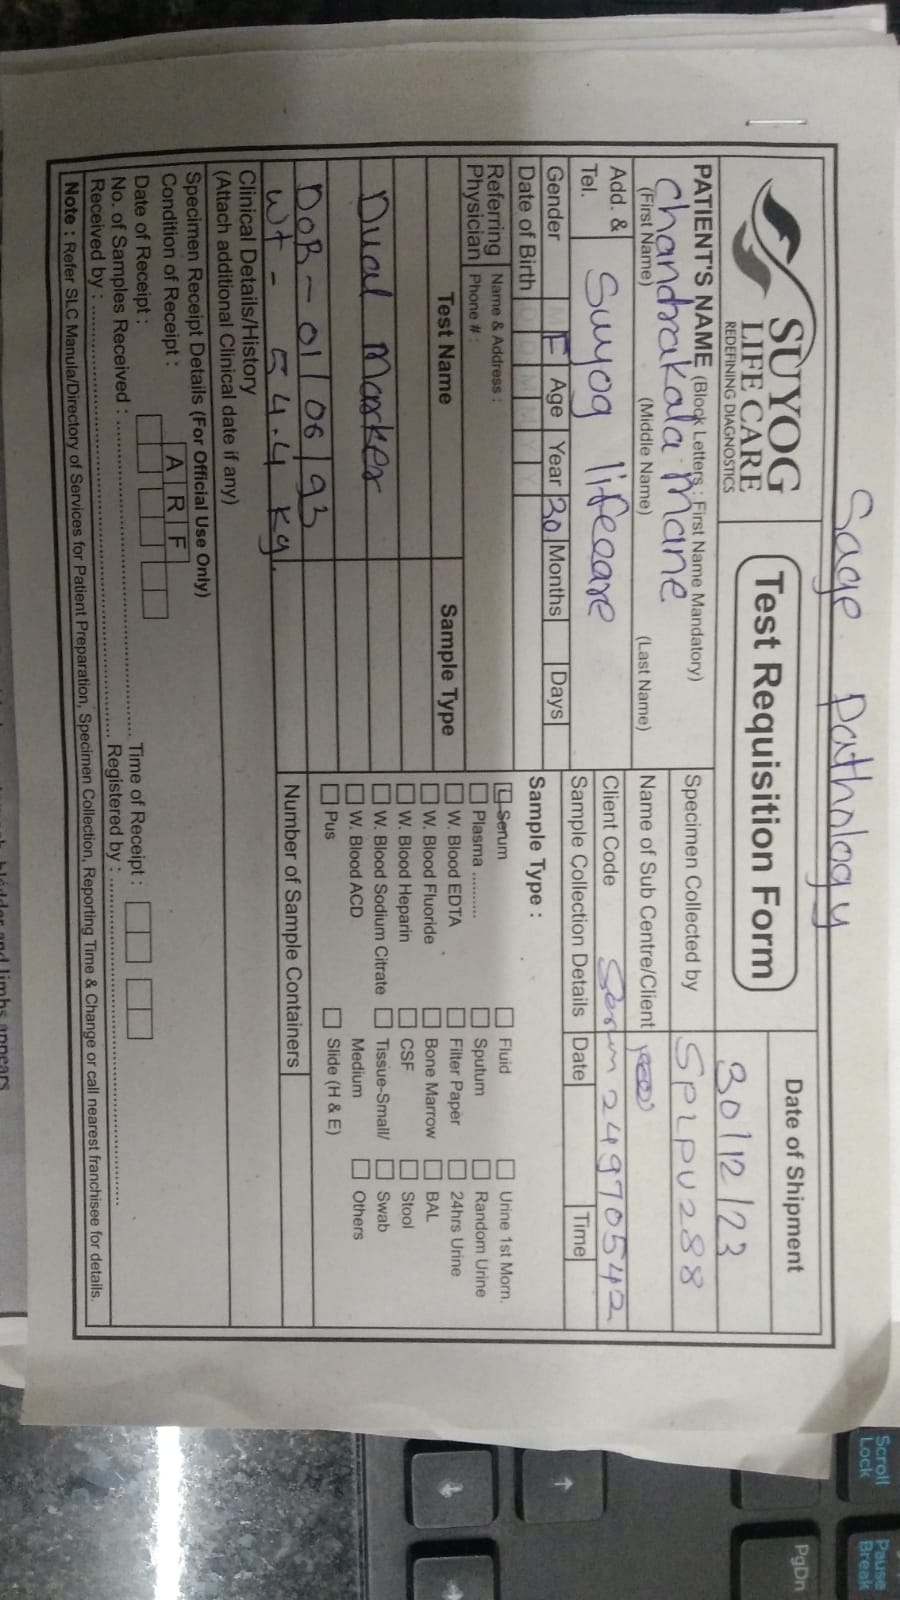 Sage Pathology
SUYOG
LIFE CARE
REDEFINING DIAGNOSTICS
Test Requisition Form
Date of Shipment
30/12/23
PATIENT'S NAME (Block Letters : First Name Mandatory)
Chandrakala Mane
(First Name) (Middle Name) (Last Name)
Specimen Collected by SPLPU288
Name of Sub Centre/Client
Add. & Tel. Suyog lifecare
Client Code Serum 24970542
Sample Collection Details Date Time
Gender M F Age Year 30 Months Days
Date of Birth D D M M Y Y
Referring Physician
Name & Address :
Phone # :
Sample Type :
Serum
Plasma ..........
W. Blood EDTA
W. Blood Fluoride
W. Blood Heparin
W. Blood Sodium Citrate
W. Blood ACD
Pus
Fluid
Sputum
Filter Paper
Bone Marrow
CSF
Tissue-Small/
Medium
Slide (H & E)
Urine 1st Morn.
Random Urine
24hrs Urine
BAL
Stool
Swab
Others
Test Name Sample Type
Dual Marker
DOB - 01/06/93
Wt - 54.4 kg.
Number of Sample Containers
Clinical Details/History
(Attach additional Clinical date if any)
Specimen Receipt Details (For Official Use Only)
Condition of Receipt : A R F
Date of Receipt : Time of Receipt :
No. of Samples Received : Registered by :
Received by :
Note : Refer SLC Manula/Directory of Services for Patient Preparation, Specimen Collection, Reporting Time & Change or call nearest franchisee for details.
bladder and limbs appears
Scroll
Lock
Pause
Break
PgDn